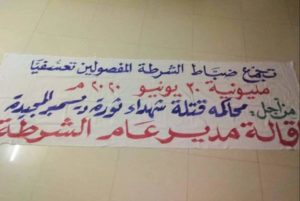 تجمع ضباط الشرطة المفصولين تعسفيا
مليونية ٣٠ يونيو ٢٠٢٠ م
من أجل: محاكمه قتلة شهداء ثورة ديسمبر المجيدة
قالة مدير عام الشرطة